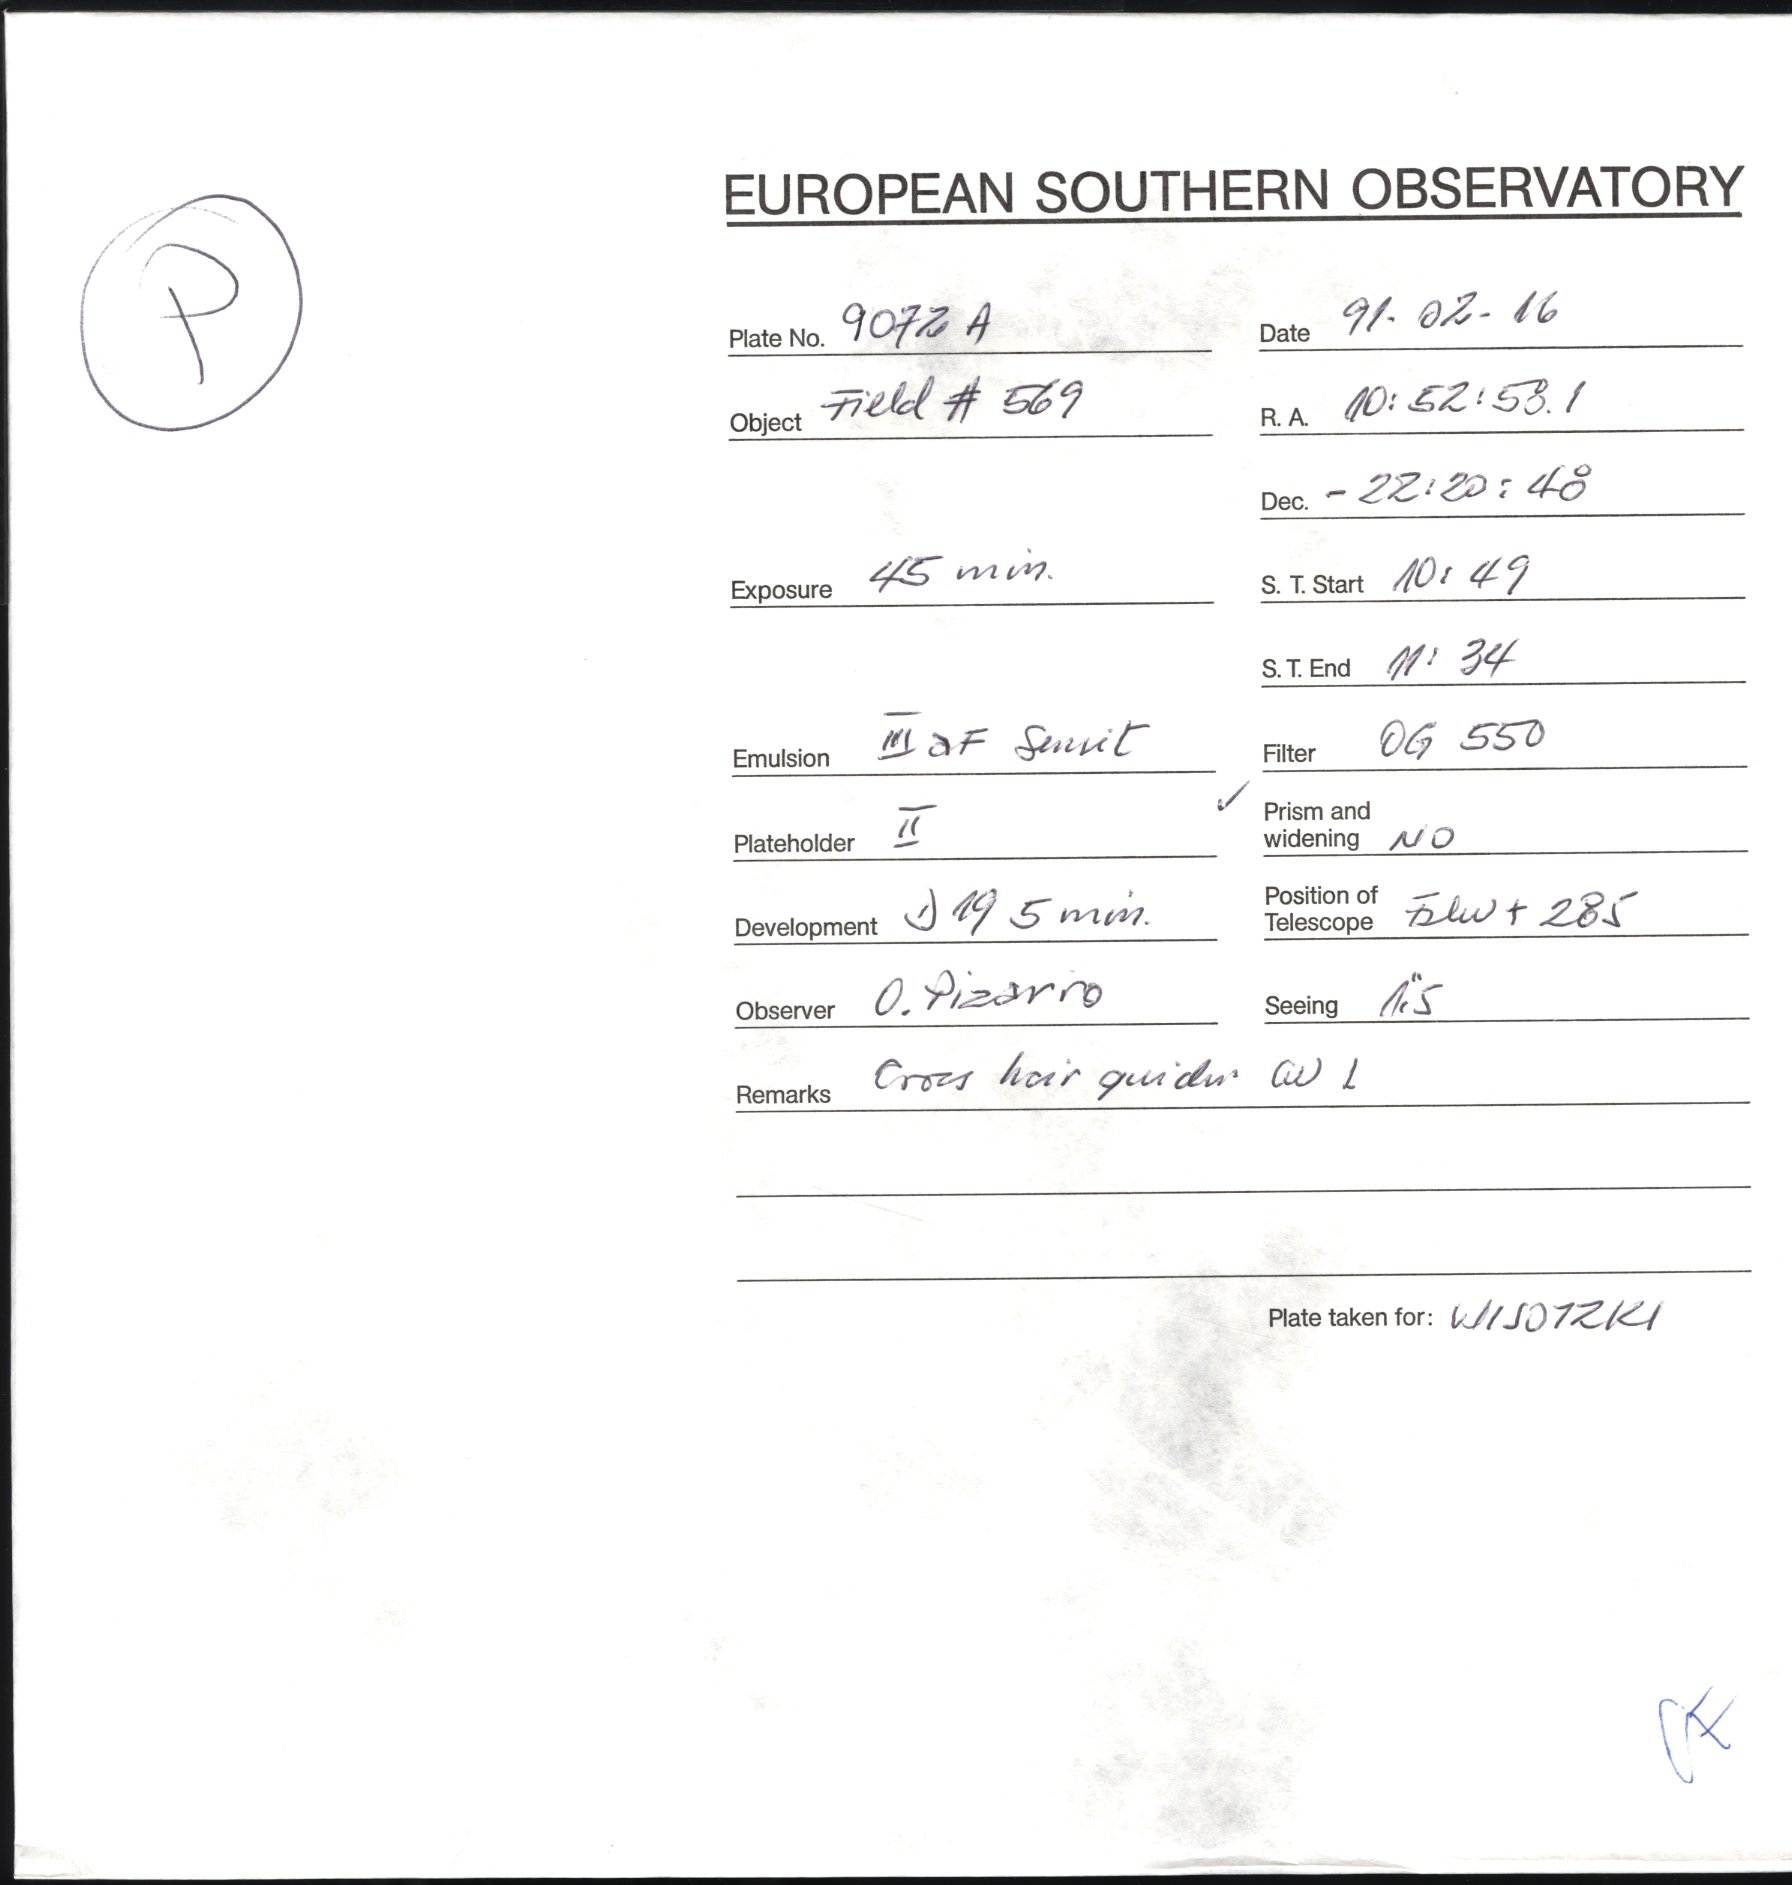 EUROPEAN SOUTHERN OBSERVATORY
P
Plate No. 9072 A
Date 91-02-16
Object Field # 569
R. A. 10:52:53.1
Dec. - 22:20:48
Exposure 45 min.
S. T. Start 10:49
S. T. End 11:34
Emulsion III aF Sensit
Filter OG 550
Plateholder II
✓ Prism and
widening NO
Development D 19 5 min.
Position of
Telescope + 285
Observer O. Pizarro
Seeing 1".5
Remarks Cross hair guider
Plate taken for: WISOTZKI